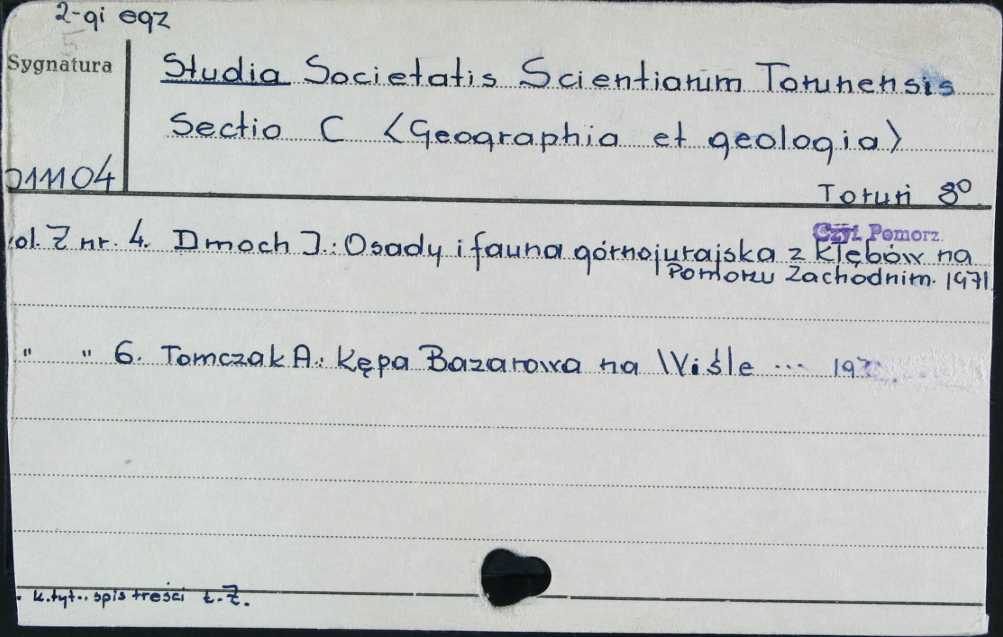 2-gi egz
Sygnatura
Studia Societatis Scientiarum Torunensis
Sectio C <Geographia et geologia>
011104
Toruń 8°
Czyt. Pomorz.
ol. 7 nr. 4. Dmoch I.: Osady i fauna górnojurajska z Kłębów na
Pomorzu Zachodnim. 1971
" " 6. Tomczak A.: Kępa Bazarowa na Wiśle ... 197
k. tyt., spis treści